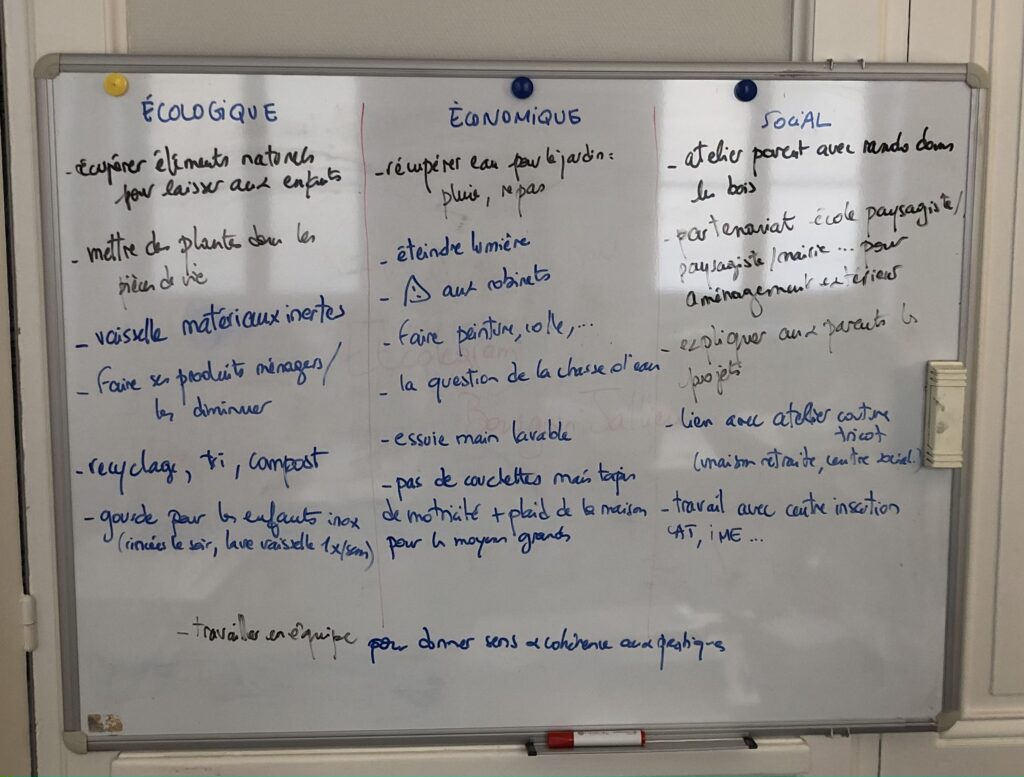 ÉCOLOGIQUE
- récupérer éléments naturels
pour laisser aux enfants
- mettre des plantes dans les
pièces de vie
- vaisselle matériaux inertes
- Faire ses produits ménagers/
les diminuer
- recyclage, tri, compost
- gourde pour les enfants inox
(rincées le soir, lave vaisselle 1x/sem)
ÈCONOMIQUE
- récupérer eau pour le jardin :
pluie, repas
- éteindre lumière
- ⚠ aux robinets
- Faire peinture, colle, ...
- la question de la chasse d'eau
- essuie main lavable
- pas de couchettes mais tapis
de motricité + plaid de la maison
pour les moyens grands
SOCiAL
- atelier parent avec rando dans
les bois
- partenariat école paysagiste/
paysagiste/mairie ... pour
aménagement extérieur
- expliquer aux parents les
projets
- lien avec atelier couture
tricot
(maison retraite, centre social.)
- travail avec centre insertion
CAT, iME ...
- travailler en équipe pour donner sens & cohérence aux pratiques